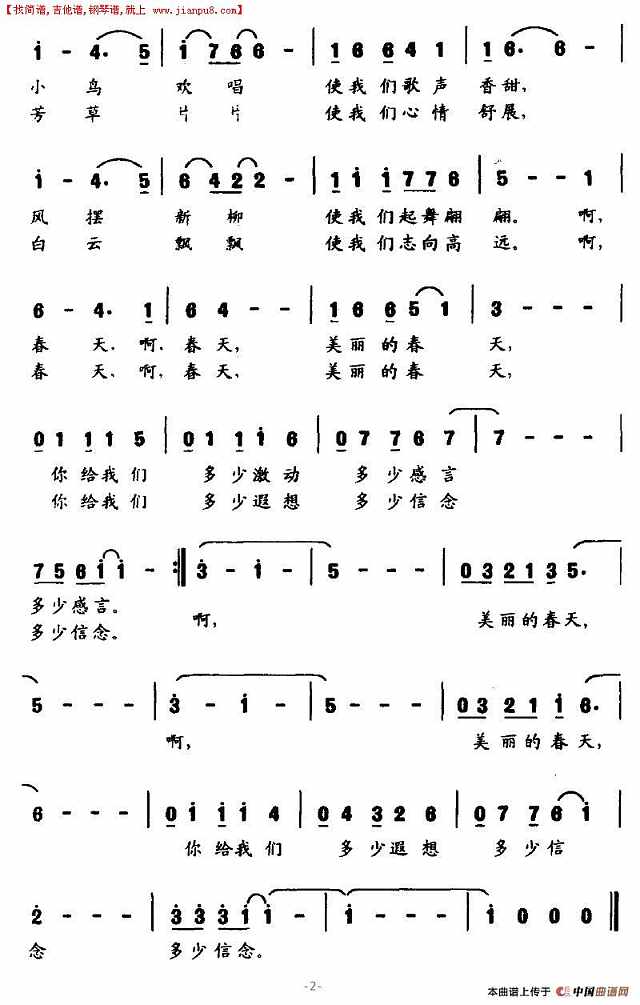 【找简谱,吉他谱,钢琴谱,就上 www.jianpu8.com】
i - 4. 5 | i 7 6 6 6 - | 1 6 6 6 4 1 | i 6. 6 - |
小 鸟 欢 唱 使我们歌声 香甜,
芳 草 片 片 使我们心情 舒展,
i - 4. 5 | 6 4 2 2 2 - | i i i 7 7 6 | 5 - - 1 |
风 摆 新 柳 使我们起舞翩 翩。 啊,
白 云 飘 飘 使我们志向高 远。 啊,
6 - 4. 1 | 6 4 - - | 1 6 6 6 5 1 | 3 - - - |
春 天, 啊, 春 天, 美丽的春 天,
春 天, 啊, 春 天, 美丽的春 天,
0 1 1 1 5 | 0 1 1 i 6 | 0 7 7 6 7 | 7 - - - |
你给我们 多少激动 多少感言
你给我们 多少遐想 多少信念
7 5 6 i i - :| 3 - i - | 5 - - - | 0 3 2 1 3 5. |
多少感言。 啊, 美丽的春天,
多少信念。
5 - - - | 3 - i - | 5 - - - | 0 3 2 1 i 6. |
啊, 美丽的春天,
6 - - - | 0 i i i 4 | 0 4 3 2 6 | 0 7 7 6 i |
你给我们 多少遐想 多少信
2 - - - | 3 3 3 i i - | i - - - | i 0 0 0 ||
念 多少信念。
-2-
本曲谱上传于 中国曲谱网